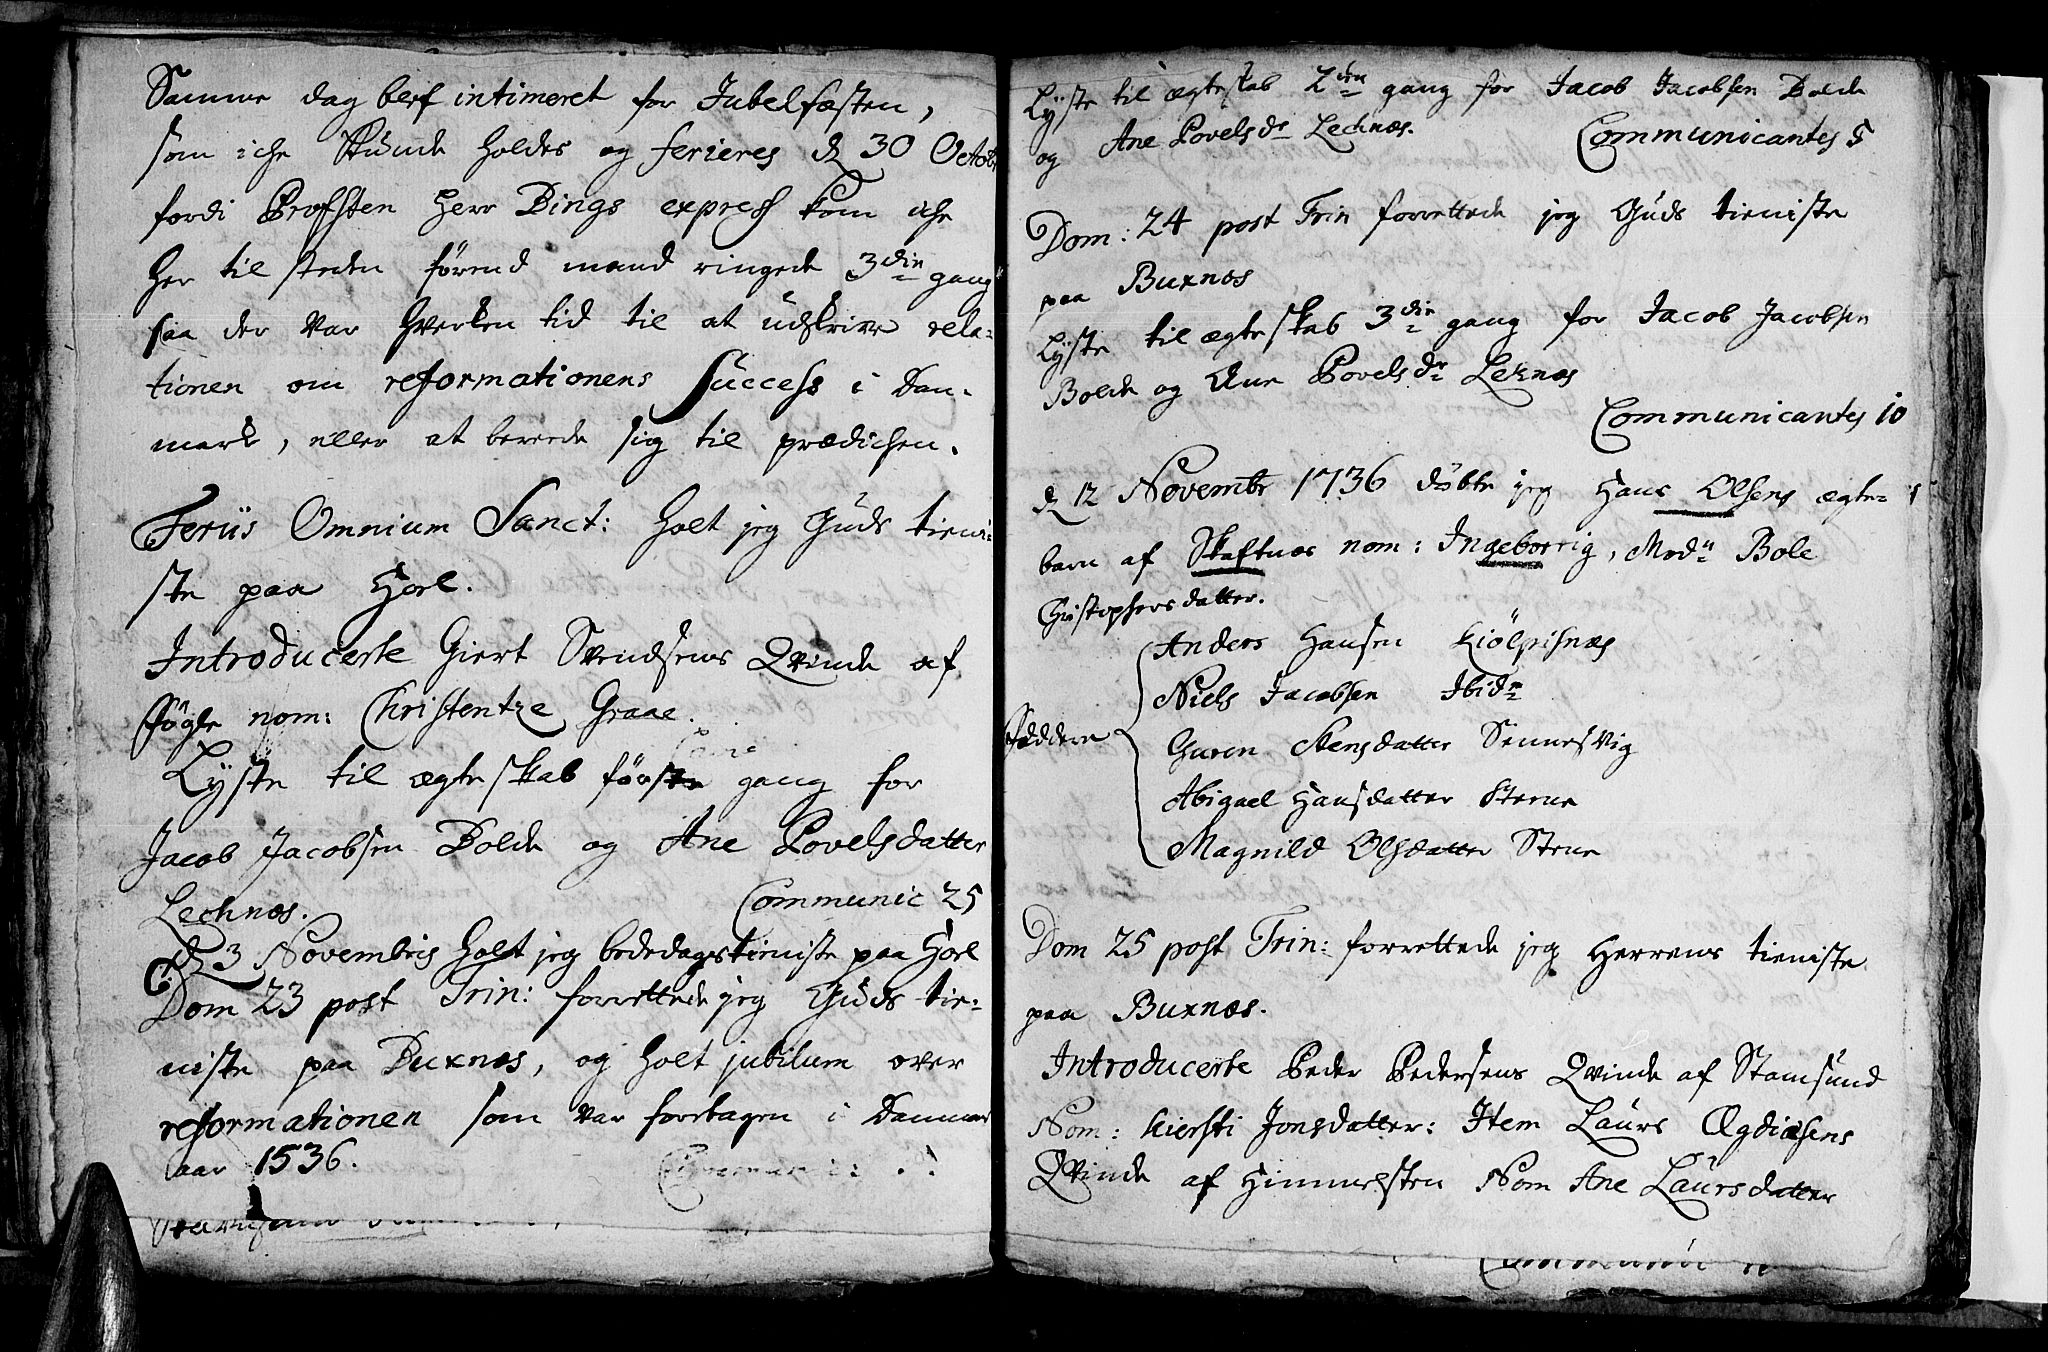 Samme dag blef intimeret for Jubelfæsten,
som iche kunde holdes og ferieres d 30 Octob
fordi Profsten Herr Bings express kom iche
her til steden førend mand ringede 3die gang
saa der var hverken tid til at udskrive rela-
tionen om reformationens Success i Dan-
mark, eller at berede sig til prædichen.
Feriis Omnium Sanct: holt jeg Guds tieni-
ste paa Horl.
Introducerte Giert Svendsens Qvinde af
føgle nom: Christentze Graae.
Lyste til ægteskab første gang for
Jacob Jacobsen Bolde og Ane Povelsdatter
Lechnæs. Communic 25
d 3 Novembris holt jeg bededagstieniste paa Horl
Dom 23 post Trin: forrettede jeg Guds tie-
niste paa Buxnæs, og holt jubilum over
reformationen som var foretagen i Danmar
aar 1536.
Lyste til ægteskab 2den gang for Jacob Jacobsen Bolde
og Ane Povelsdr Lechnæs. Communicantes 5
Dom: 24 post Trin forrettede jeg Guds tieniste
paa Buxnæs
Lyste til ægteskab 3die gang for Jacob Jacobsen
Bolde og Ane Povelsdr Leknæs
Communicantes 10
d 12 Novembr 1736 døbte jeg Hans Olsens ægte-
barn af Skaftnæs nom: Ingeborrig, Modn Bole
Christophersdatter.
Anders Hansen Kiölpisnæs
Niels Jacobsen Ibidm
Faddere Guren Stensdatter Sennesvig
Abigael Hansdatter Steene
Magnild Olsdatter Stene
Dom 25 post Trin: forrettede jeg Herrens tieniste
paa Buxnæs.
Introducerte Peder Pedersens Qvinde af Stamsund
Nom: Kiersti Jonsdatter: Item Laurs Ægdiæsens
Qvinde af Himmelsten Nom Ane Laursdatter